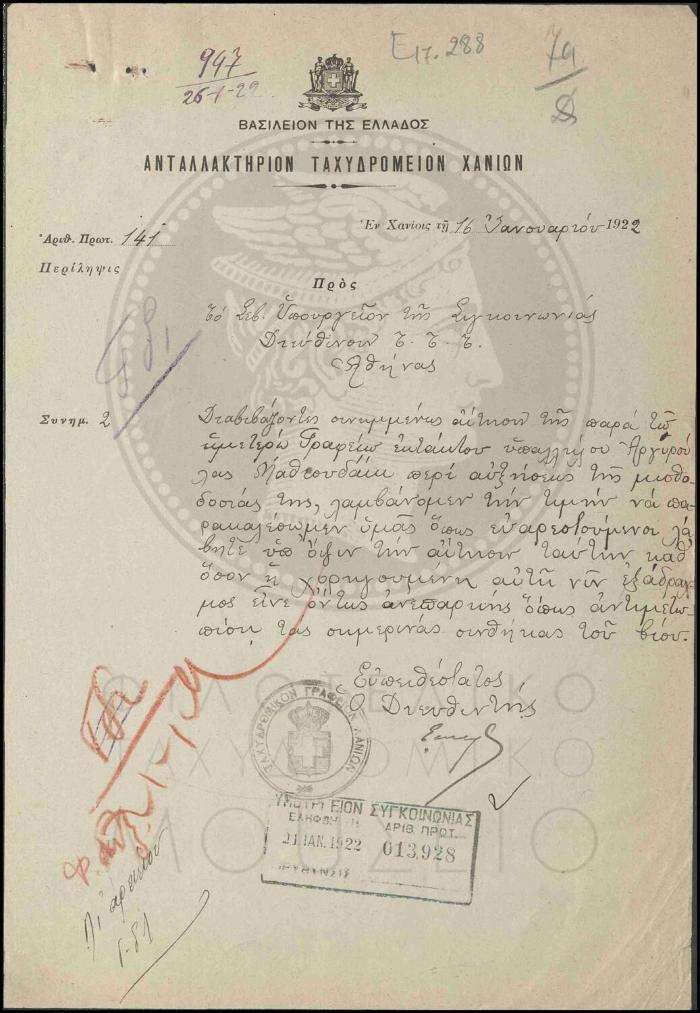 947
26-1-22
Ε17.288
ΒΑΣΙΛΕΙΟΝ ΤΗΣ ΕΛΛΑΔΟΣ
ΑΝΤΑΛΛΑΚΤΗΡΙΟΝ ΤΑΧΥΔΡΟΜΕΙΟΝ ΧΑΝΙΩΝ
Ἀριθ. Πρωτ. 141
Ἐν Χανίοις τῇ 16 Ἰανουαρίου 1922
Περίληψις
Πρὸς
τὸ Σεβ. Ὑπουργεῖον τῆς Συγκοινωνίας
Διεύθυνσιν Τ. Τ. Τ.
Ἀθήνας
Συνημ. 2
Διαβιβάζοντες συνημμένως αἴτησιν τῆς παρὰ τῷ
ἡμετέρῳ Γραφείῳ ἐκτάκτου ὑπαλλήλου Ἀργυρού
λας περὶ αὐξήσεως τῆς μισθο
δοσίας της, λαμβάνομεν τὴν τιμὴν νὰ πα
ρακαλέσωμεν ὑμᾶς ὅπως εὐαρεστούμενοι λά
βητε ὑπ' ὄψιν τὴν αἴτησιν ταύτην καθ'
ὅσον ἡ χορηγουμένη αὐτῇ νῦν
εἶνε ὄντως ἀνεπαρκὴς ὅπως ἀντιμετω
πίσῃ τὰς σημερινὰς συνθήκας τοῦ βίου.
Εὐπειθέστατος
Ὁ Διευθυντής
ΤΑΧΥΔΡΟΜΙΚΟΝ ΓΡΑΦΕΙΟΝ ΧΑΝΙΩΝ
ΥΠΟΥΡΓΕΙΟΝ ΣΥΓΚΟΙΝΩΝΙΑΣ
ΕΛΗΦΘΗ ΤΗ ΑΡΙΘ. ΠΡΩΤ.
21 ΙΑΝ. 1922 013,928
ΔΙΕΥΘΥΝΣΙΣ
ΦΙΛΟΤΕΛΙΚΟ
ΤΑΧΥΔΡΟΜΙΚΟ
ΜΟΥΣΕΙΟ